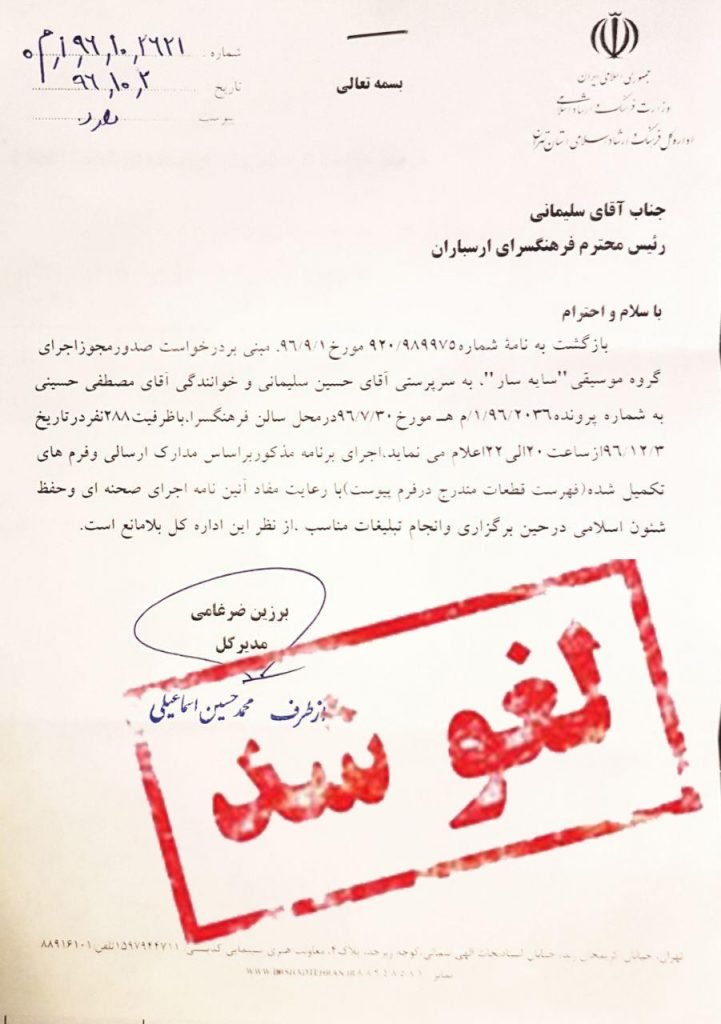 جمهوری اسلامی ایران
وزارت فرهنگ و ارشاد اسلامی
اداره کل فرهنگ و ارشاد اسلامی استان تهران
بسمه تعالی
شماره ۹۶٫۱۰٫۲۶۲۱
تاریخ ۹۶٫۱۰٫۲
پیوست دارد
جناب آقای سلیمانی
رئیس محترم فرهنگسرای ارسباران
با سلام و احترام
بازگشت به نامهٔ شماره۹۲۰/۹۸۹۹۷۵ مورخ ۹۶/۹/۱، مبنی بردرخواست صدورمجوزاجرای
گروه موسیقی"سایه سار"، به سرپرستی آقای حسین سلیمانی و خوانندگی آقای مصطفی حسینی
به شماره پرونده۱/۹۶/۲۰۳۶/م هـ مورخ ۹۶/۷/۳۰درمحل سالن فرهنگسرا،باظرفیت۲۸۸نفردرتاریخ
۹۶/۱۲/۳ازساعت۲۰الی۲۲اعلام می نماید،اجرای برنامه مذکوربراساس مدارک ارسالی وفرم های
تکمیل شده(فهرست قطعات مندرج درفرم پیوست)با رعایت مفاد آئین نامه اجرای صحنه ای وحفظ
شئون اسلامی درحین برگزاری وانجام تبلیغات مناسب ،از نظر این اداره کل بلامانع است.
برزین ضرغامی
مدیرکل
ازطرف محمدحسین اسماعیلی
لغو شد
تهران، خیابان کریمخان زند، خیابان استادنجات الهی شمالی،کوچه ،پلاک۴، معاونت هنری سینمایی کدپستی ۱۵۹۷۹۴۴۷۱۱تلفن:۸۸۹۱۶۱۰۱
نمابر